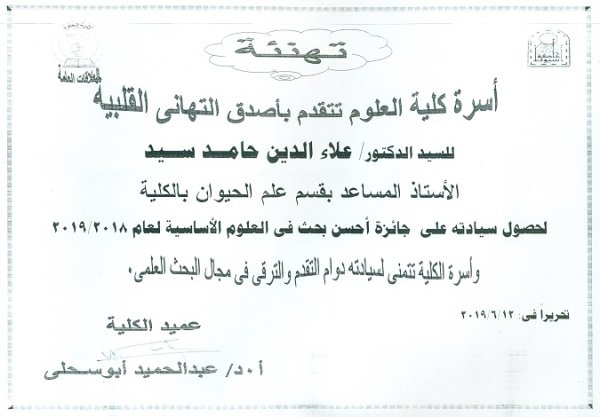 تهنئة
العلاقات العامة
أسرة كلية العلوم تتقدم بأصدق التهانى القلبية
للسيد الدكتور/ علاء الدين حامد سيد
الأستاذ المساعد بقسم علم الحيوان بالكلية
لحصول سيادته على جائزة أحسن بحث فى العلوم الأساسية لعام ٢٠١٩/٢٠١٨
وأسرة الكلية تتمنى لسيادته دوام التقدم والترقى فى مجال البحث العلمى.
تحريراً فى: ٢٠١٩/٦/١٢
عميد الكلية
أ.د/ عبدالحميد أبوسحلى